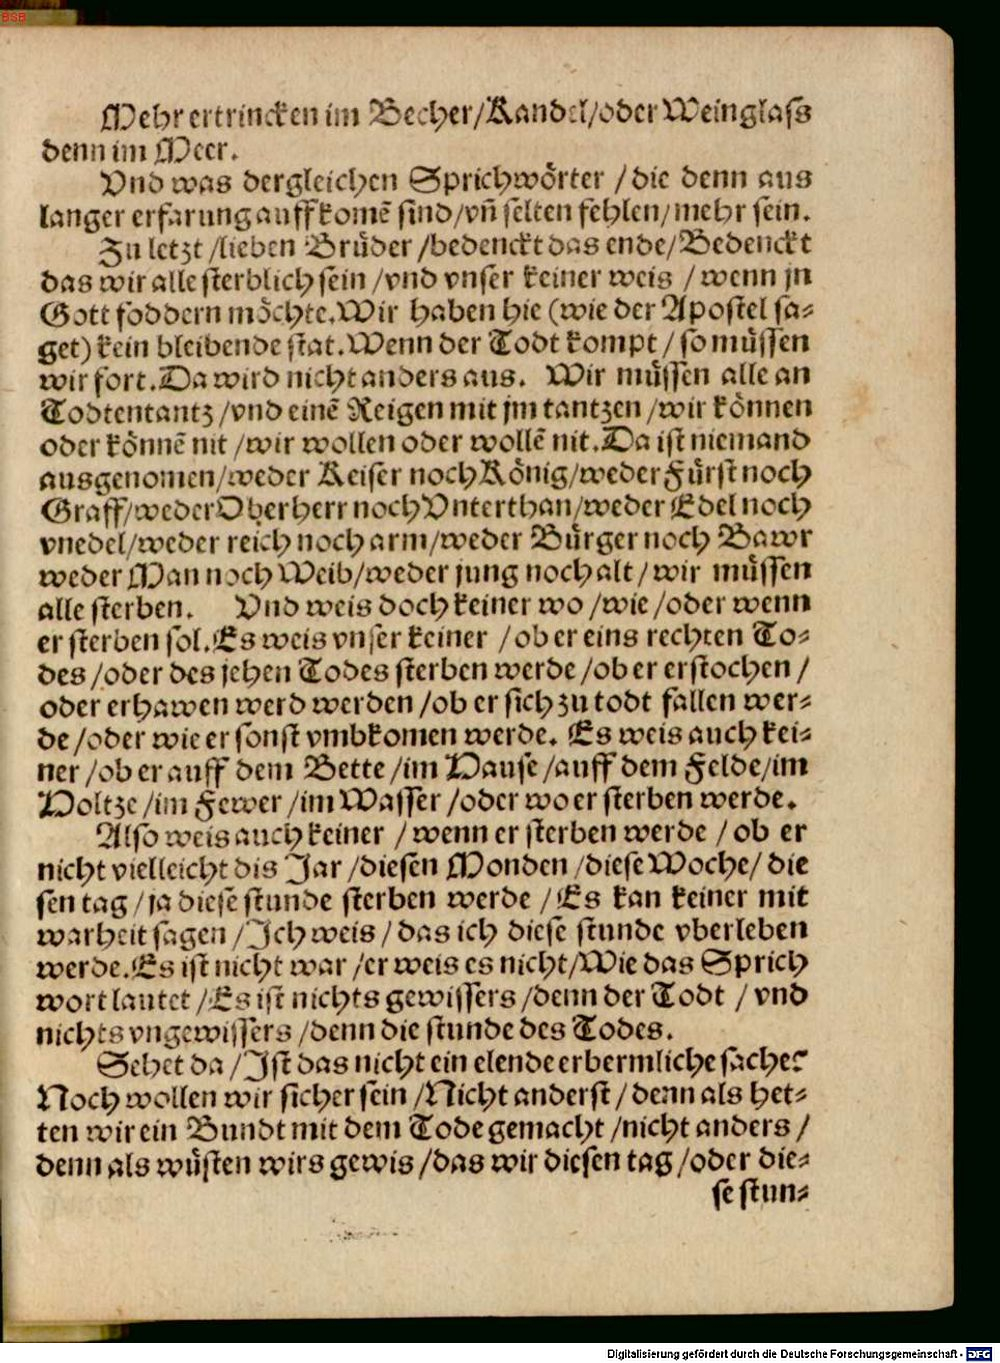 BSB
Mehr ertrincken im Becher/Kandel/oder Weinglass
denn im Meer.
Vnd was dergleichen Sprichwörter /die denn aus
langer erfarung auffkomē sind/vñ selten fehlen/mehr sein.
Zu letzt /lieben Brüder /bedenckt das ende/Bedenckt
das wir alle sterblich sein /vnd vnser keiner weis / wenn jn
Gott foddern möchte.Wir haben hie (wie der Apostel sa-
get) kein bleibende stat.Wenn der Todt kompt / so müssen
wir fort.Da wird nicht anders aus. Wir müssen alle an
Todtentantz /vnd einē Reigen mit jm tantzen /wir können
oder könnē nit /wir wollen oder wollē nit.Da ist niemand
ausgenomen/weder Keiser noch König/weder Fürst noch
Graff/weder Oberherr noch Vnterthan/weder Edel noch
vnedel/weder reich noch arm/weder Bürger noch Bawr
weder Man noch Weib/weder jung noch alt / wir müssen
alle sterben. Vnd weis doch keiner wo /wie /oder wenn
er sterben sol.Es weis vnser keiner /ob er eins rechten To-
des /oder des jehen Todes sterben werde /ob er erstochen /
oder erhawen werd werden /ob er sich zu todt fallen wer-
de /oder wie er sonst vmbkomen werde. Es weis auch kei-
ner /ob er auff dem Bette /im Hause /auff dem Felde/im
Holtze /im Fewer /im Wasser /oder wo er sterben werde.
Also weis auch keiner / wenn er sterben werde / ob er
nicht vielleicht dis Jar /diesen Monden /diese Woche/ die
sen tag / ja diese stunde sterben werde / Es kan keiner mit
warheit sagen /Ich weis / das ich diese stunde vberleben
werde.Es ist nicht war /er weis es nicht/Wie das Sprich
wort lautet /Es ist nichts gewissers /denn der Todt / vnd
nichts vngewissers /denn die stunde des Todes.
Sehet da /Ist das nicht ein elende erbermliche sache?
Noch wollen wir sicher sein /Nicht anderst / denn als het-
ten wir ein Bundt mit dem Tode gemacht /nicht anders /
denn als wüsten wirs gewis /das wir diesen tag /oder die-
se stun-
Digitalisierung gefördert durch die Deutsche Forschungsgemeinschaft - DFG